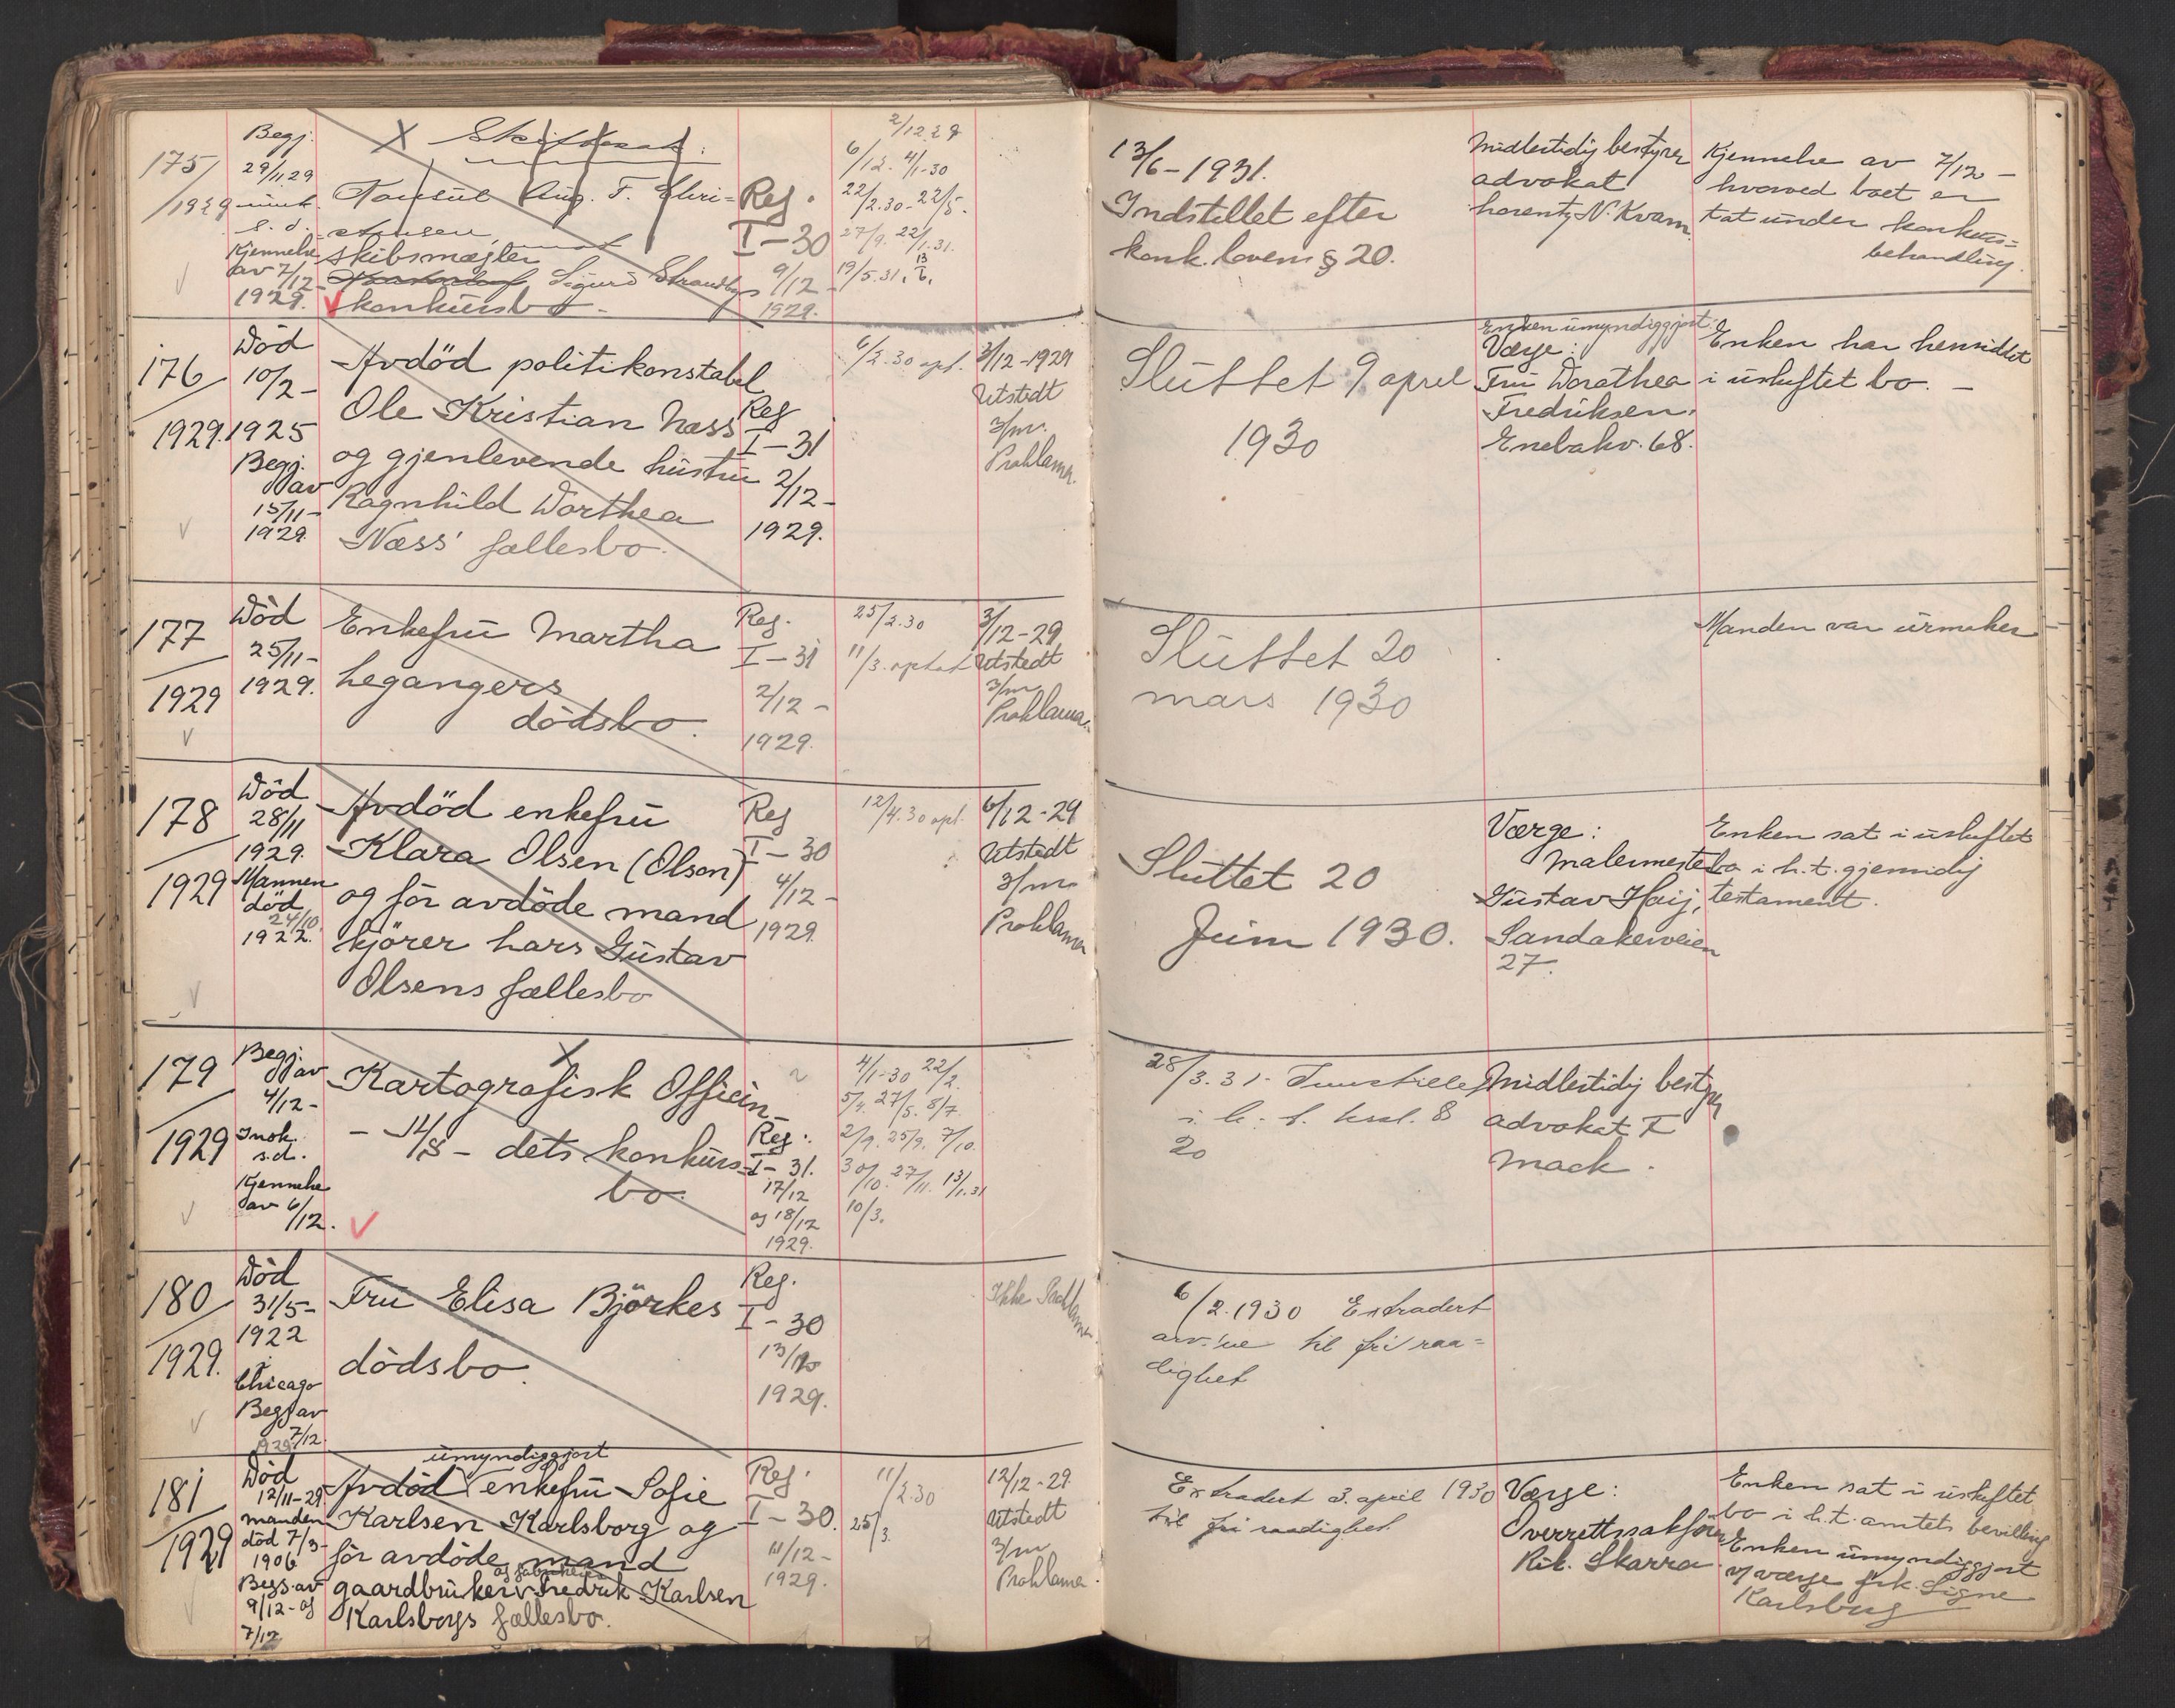 175/
1929
Begj.
29/11 29
s.d.
Kjennelse
av 7/12-
1929.
X Skiftesak:
Konsul Aug. F. Chri-
stensen,
skibsmægler
Sigurd Strandbys
konkursbo -
Reg.
I-30
9/12
1929.
2/12 29
6/12. 4/1-30
22/2.30-22/5.
27/9. 22/1.31.
19/5.31. 13/6.
13/6-1931.
Indstillet efter
konk. loven § 20.
Midlertidig bestyrer
advokat
Lorentz N. Kvam.
Kjennelse av 7/12 -
hvorved boet er
tat under konkurs=
behandling.
176
1929.
Död
10/2-
1925
Begj.
av
15/11-
1929.
Avdöd politikonstabel
Ole Kristian Næss
og gjenlevende hustru
Ragnhild Dorthea
Næss' fællesbo.
Reg
I-31
2/12-
1929.
6/2.30 opt.
3/12-1929
Utstedt
3/mr.
Proklama.
Sluttet 9 april
1930
Enken umyndiggjort.
Værge:
Fru Dorathea
Fredriksen.
Enebakv. 68.
Enken har hensiddet
i uskiftet bo. -
177
1929
Död
25/11-
1929.
Enkefru Martha
Legangers
dödsbo.
Reg.
I-31
2/12-
1929.
25/2.30
11/3. optat
3/12-29
Utstedt
3/mr
Proklama.
Sluttet 20
mars 1930
Manden var urmaker
178
1929
Död
28/11
1929.
Mannen
död
24/10
1922.
Avdöd enkefru
Klara Olsen (Olson)
og för avdöde mand
kjörer Lars Gustav
Olsens fællesbo
Reg
I-30
4/12-
1929.
12/4.30 opt.
6/12-29
Utstedt
3/mr
Proklama
Sluttet 20
Juni 1930.
Værge:
Malermester
Gustav Haij,
Sandakerveien
27.
Enken sat i uskiftet
bo i h.t. gjensidig
testament.
179
1929
Begj.
av
4/12-
Innk.
s.d.
Kjennelse
av 6/12.
X
Kartografisk Officin-
- A/S - dets konkurs-
bo.
Reg.
I-31.
17/12
og 18/12
1929.
4/1-30 22/2.
5/4. 27/5. 8/7.
2/9. 25/9. 7/10.
30/10. 27/11. 13/1.31
10/3.
28/3.31. Innstillet
i h. t. ksl. §
20
Midlertidig bestyrer
advokat F
Mack.
180
1929.
Död
31/5-
1922
i
Chicago
Begj av
7/12
1929.
Fru Elisa Björkes
dödsbo.
Reg.
I-30
1929.
Ikke Proklama
6/2.1930 Extradert
til fri raa=
dighet
181
1929
Död
12/11-29
manden
död 7/3-
1906
Begj. av
9/12- og
7/12
umyndiggjort
Avdöd enkefru Sofie
Karlsen Karlsborg og
för avdöde mand
gaardbruker Fredrik Karlsen
Karlsborgs fællesbo.
Reg.
I-30.
11/12-
1929.
11/2.30
25/3.
12/12-29
Utstedt
3/mr
Proklama.
Extradert 3. april 1930
til fri raadighet.
Værge:
Overrettssakförer
Rik. Skarra.
Enken sat i uskiftet
bo i h.t. amtets bevilling
Enken umyndiggjort
v/ værge frk. Signe
Karlsborg